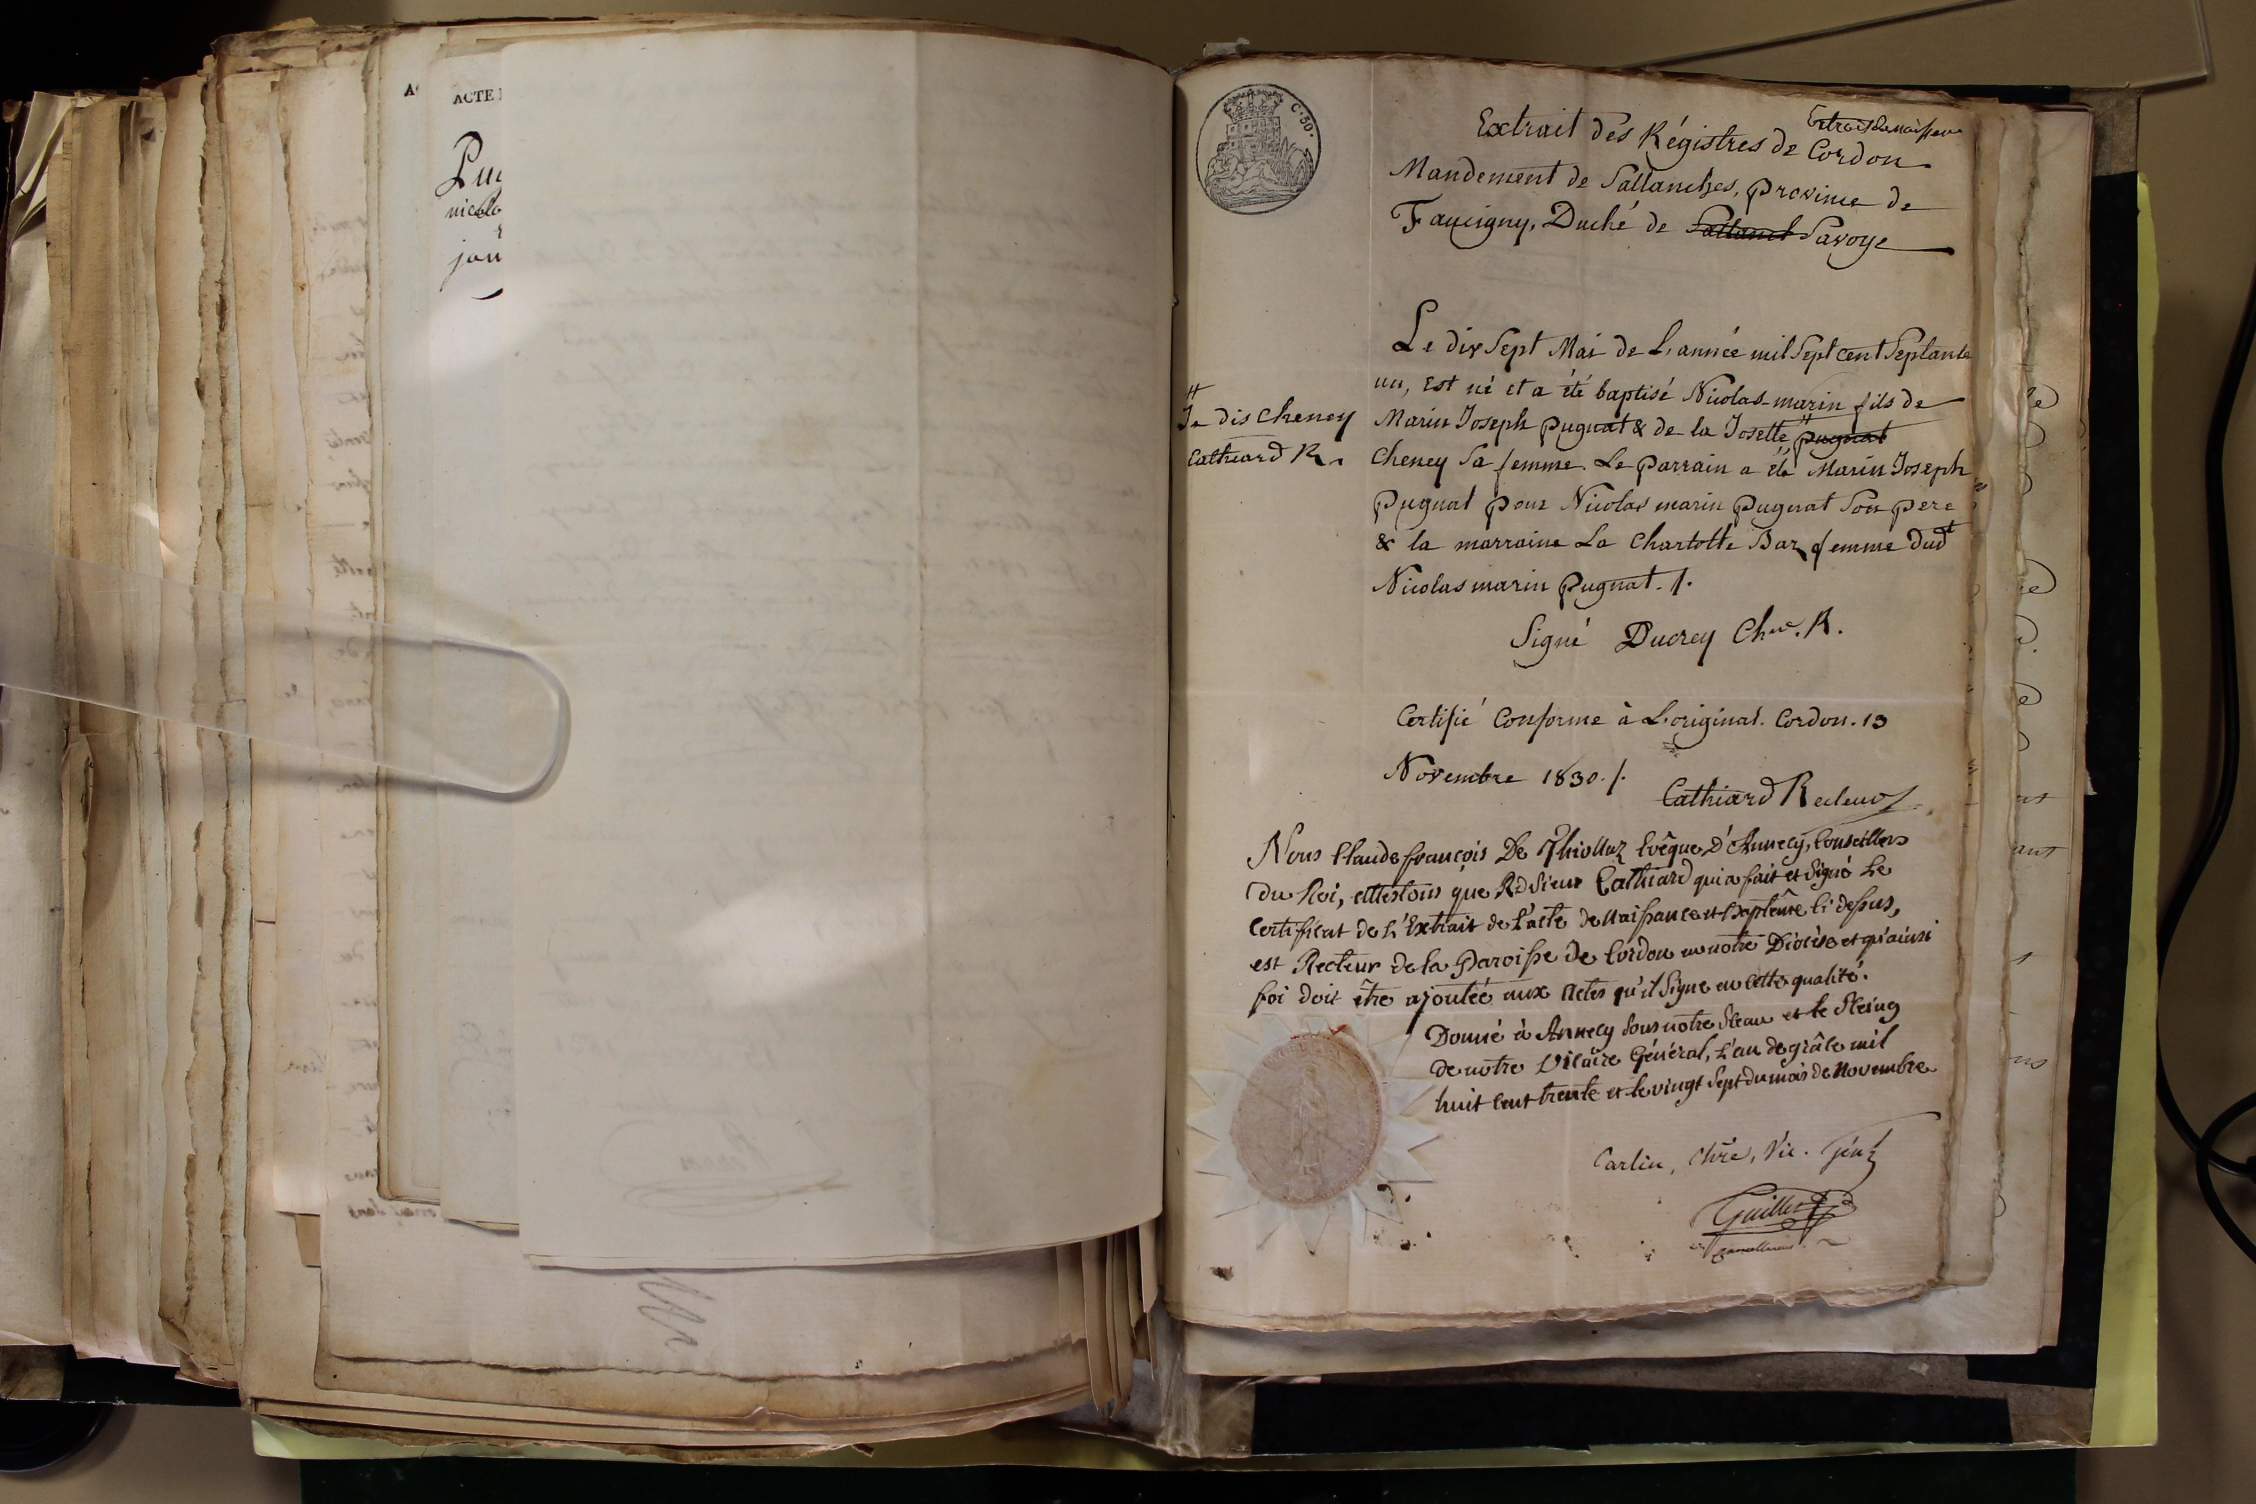 ACTE
Pu
nicolo
jan
C. 50.
Extrait de naissance
Extrait des Régistres de Cordon
Mandement de Sallanches, province de
Faucigny, Duché de Sallanch Savoye
Le dix Sept Mai de L'année mil Sept cent Septante
un, Est né et a été baptisé Nicolas-marin fils de
Marin Joseph pugnat & de la Josette pugnat
Cheney Sa femme. Le parrain a été Marin Joseph
pugnat pour Nicolas marin pugnat Son pere
& la marraine La Charlotte Baz femme dudt
Nicolas marin pugnat. /.
Je dis Cheney
Cathiard R.
Signé Ducrey Chne. R.
Certifié Conforme à L'original. Cordon. 13
Novembre 1830. /.
Cathiard Recteur
Nous Claude françois De Thiollaz Evêque D'Annecy, Conseiller
du Roi, attestons que Rd Sieur Cathiard qui a fait et Signé Le
Certificat de L'Extrait de L'acte de Naissance et Baptême Ci dessus,
est Recteur de la Paroisse de Cordon en notre Diocèse et qu'ainsi
foi doit être ajoutée aux Actes qu'il Signe en Cette qualité.
Donné à Annecy Sous notre Sceau et le Seing
de notre Vicaire Général, L'an de grâce mil
huit Cent trente et le vingt Sept du mois de Novembre
Carlin, Chne, Vic. Génl
Guillet
Cancellarius